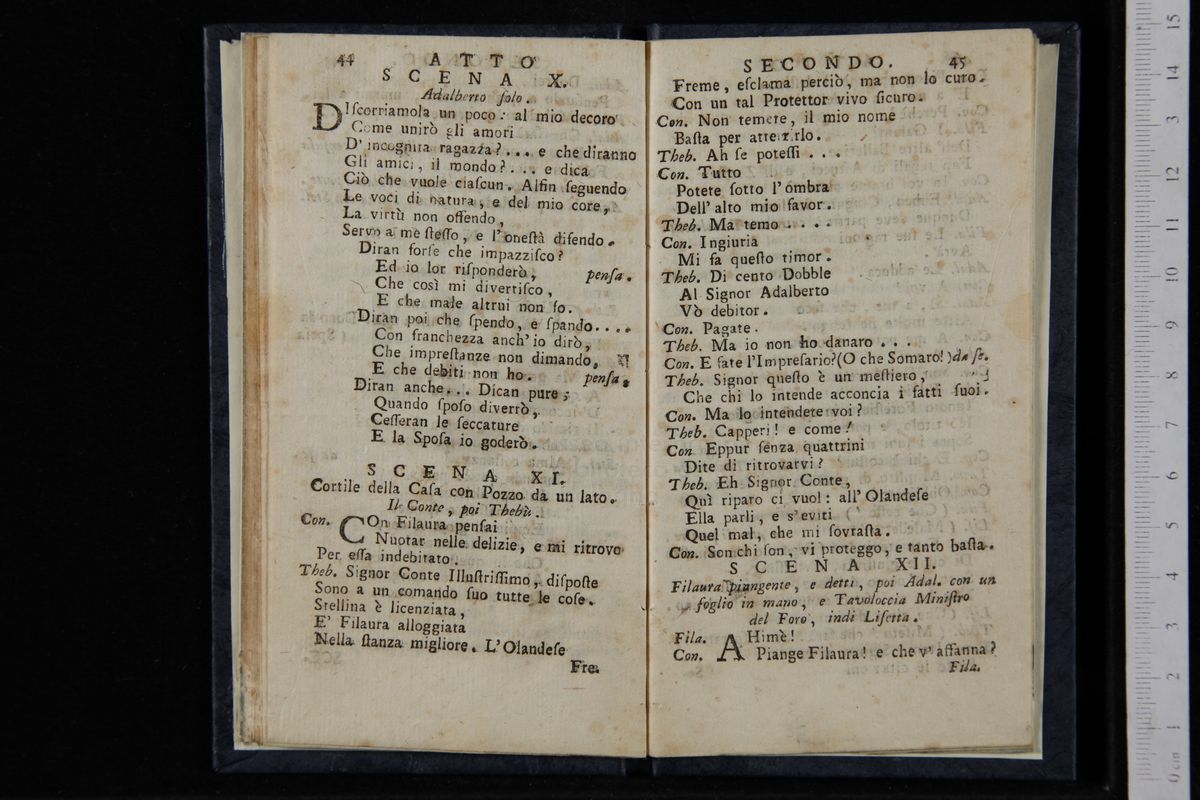 44 ATTO
SCENA X.
Adalberto ſolo.
DIſcorriamola un poco: al mio decoro
Come unirò gli amori
D' incognita ragazza?... e che diranno
Gli amici, il mondo?... e dica
Ciò che vuole ciaſcun. Alfin ſeguendo
Le voci di natura, e del mio core,
La virtù non offendo,
Servo a me ſteſſo, e l'oneſtà difendo.
Diran forſe che impazziſco?
Ed io lor riſponderò, penſa.
Che così mi divertiſco,
E che male altrui non fo.
Diran poi che ſpendo, e ſpando....
Con franchezza anch' io dirò,
Che impreſtanze non dimando,
E che debiti non ho. penſa.
Diran anche... Dican pure;
Quando ſpoſo diverrò,
Ceſſeran le ſeccature
E la Spoſa io goderò.
SCENA XI.
Cortile della Caſa con Pozzo da un lato.
Il Conte, poi Thebis.
Con. COn Filaura penſai
Nuotar nelle delizie, e mi ritrovo
Per eſſa indebitato.
Theb. Signor Conte Illuſtriſſimo, diſpoſte
Sono a un comando ſuo tutte le coſe.
Stellina è licenziata,
E' Filaura alloggiata
Nella ſtanza migliore. L'Olandeſe
Fre.
SECONDO. 45
Freme, eſclama perciò, ma non lo curo.
Con un tal Protettor vivo ſicuro.
Con. Non temere, il mio nome
Baſta per atterrirlo.
Theb. Ah ſe poteſſi...
Con. Tutto
Potete ſotto l'ombra
Dell' alto mio favor.
Theb. Ma temo....
Con. Ingiuria
Mi fa queſto timor.
Theb. Di cento Dobble
Al Signor Adalberto
Vò debitor.
Con. Pagate.
Theb. Ma io non ho danaro...
Con. E fate l'Impreſario?(O che Somaro!)da ſe.
Theb. Signor queſto è un meſtiero,
Che chi lo intende acconcia i fatti ſuoi.
Con. Ma lo intendete voi?
Theb. Capperi! e come!
Con Eppur ſenza quattrini
Dite di ritrovarvi?
Theb. Eh Signor Conte,
Quì riparo ci vuol: all' Olandeſe
Ella parli, e s'eviti
Quel mal, che mi ſovraſta.
Con. Son chi ſon, vi proteggo, e tanto baſta.
SCENA XII.
Filaura piangente, e detti, poi Adal. con un
foglio in mano, e Tavoloccia Miniſtro
del Foro, indi Liſetta.
Fila. AHimè!
Con. Piange Filaura! e che v' affanna?
Fila.
15
14
3
12
11
10
9
8
7
6
5
4
3
2
1
0 cm